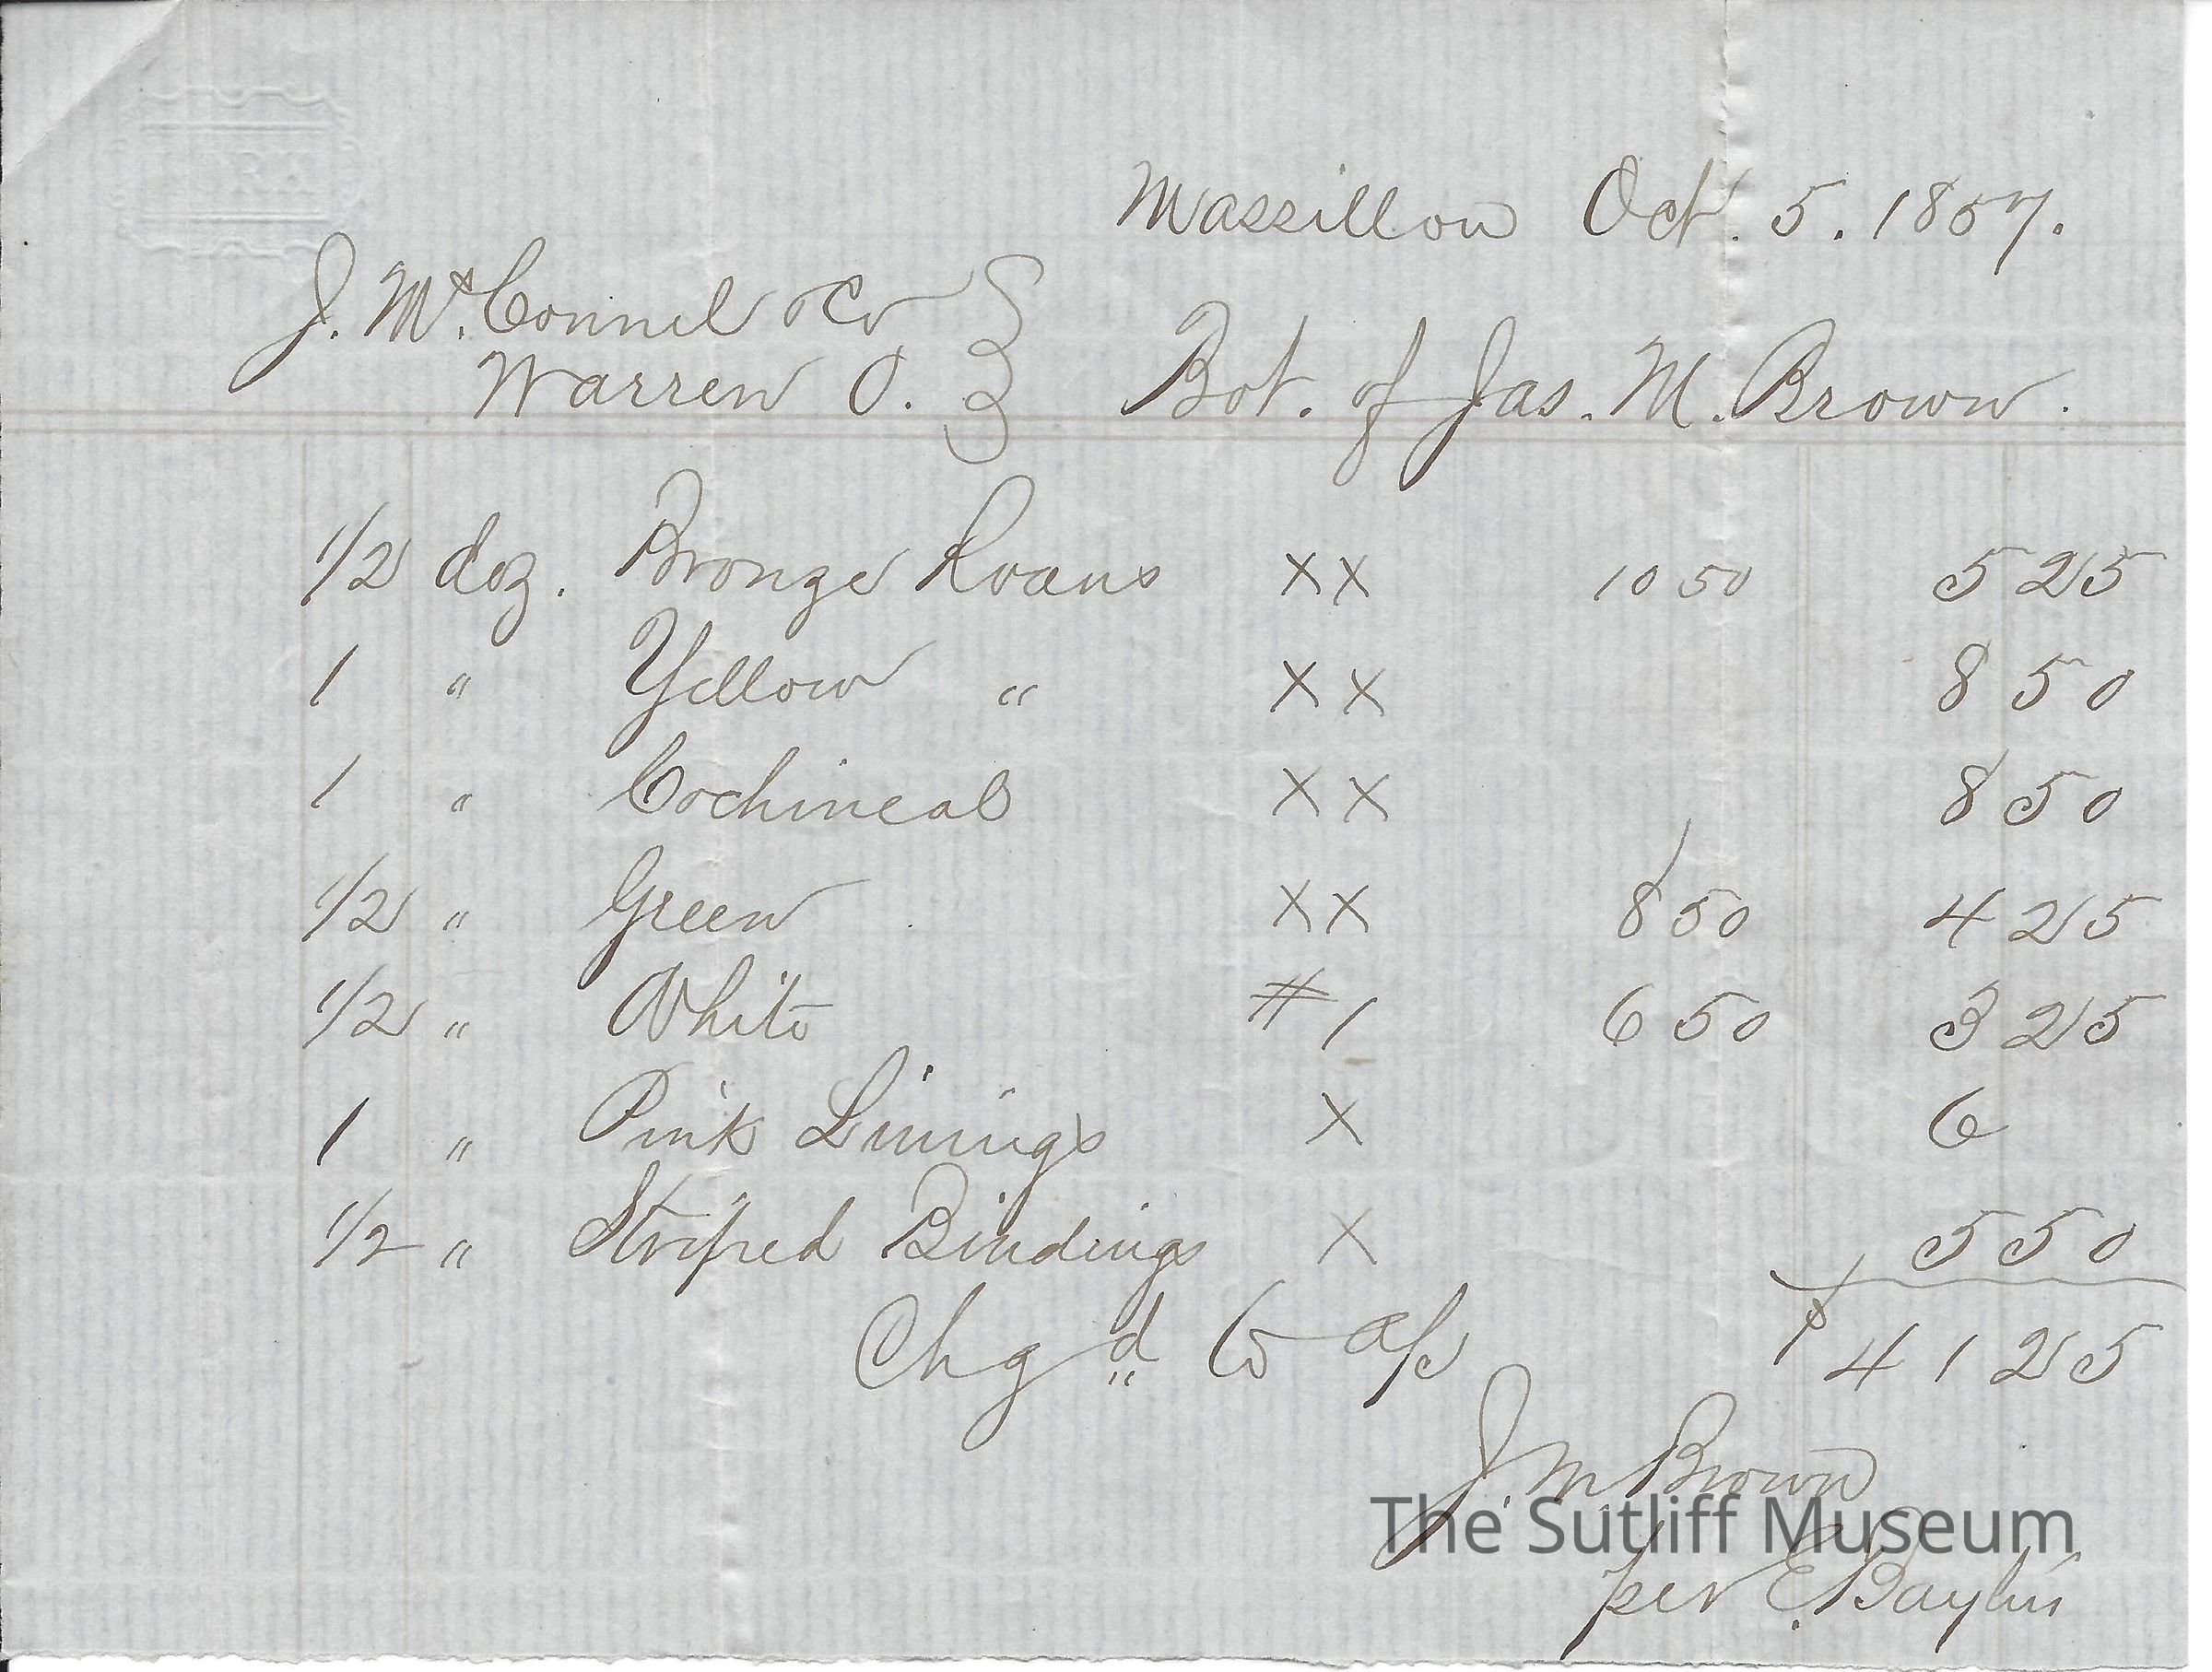 Massillon Oct. 5. 1857.
J. McConnel & Co
Warren O. Bot. of Jas. M. Brown.
1/2 doz. Bronze Roans XX 10 50 5 25
1 " Yellow " XX 8 50
1 " Cochineal XX 8 50
1/2 " Green XX 8 50 4 25
1/2 " White #1 6 50 3 25
1 " Pink Linings X 6
1/2 " Striped Bindings X 5 50
Chgd to a/c $41 25
J. M. Brown
The Sutliff Museum
per E.